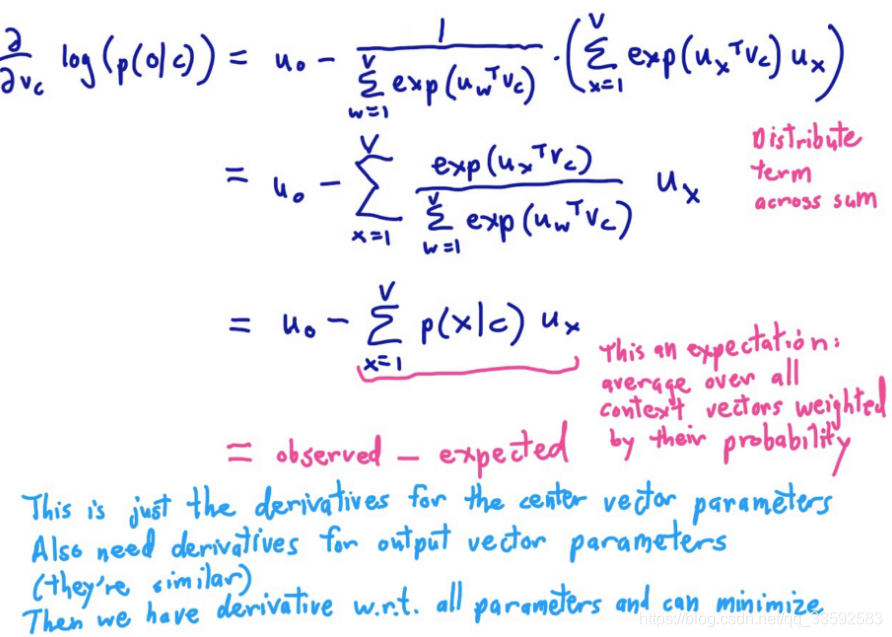 ∂/∂v_c log(p(o|c)) = u_o - 1/(∑_{w=1}^{V} exp(u_w^T v_c)) · (∑_{x=1}^{V} exp(u_x^T v_c) u_x)
= u_o - ∑_{x=1}^{V} exp(u_x^T v_c)/(∑_{w=1}^{V} exp(u_w^T v_c)) u_x
Distribute
term
across sum
= u_o - ∑_{x=1}^{V} p(x|c) u_x
This an expectation:
average over all
context vectors weighted
by their probability
= observed - expected
This is just the derivatives for the center vector parameters
Also need derivatives for output vector parameters
(they're similar)
Then we have derivative w.r.t. all parameters and can minimize
https://blog.csdn.net/qq_33592583